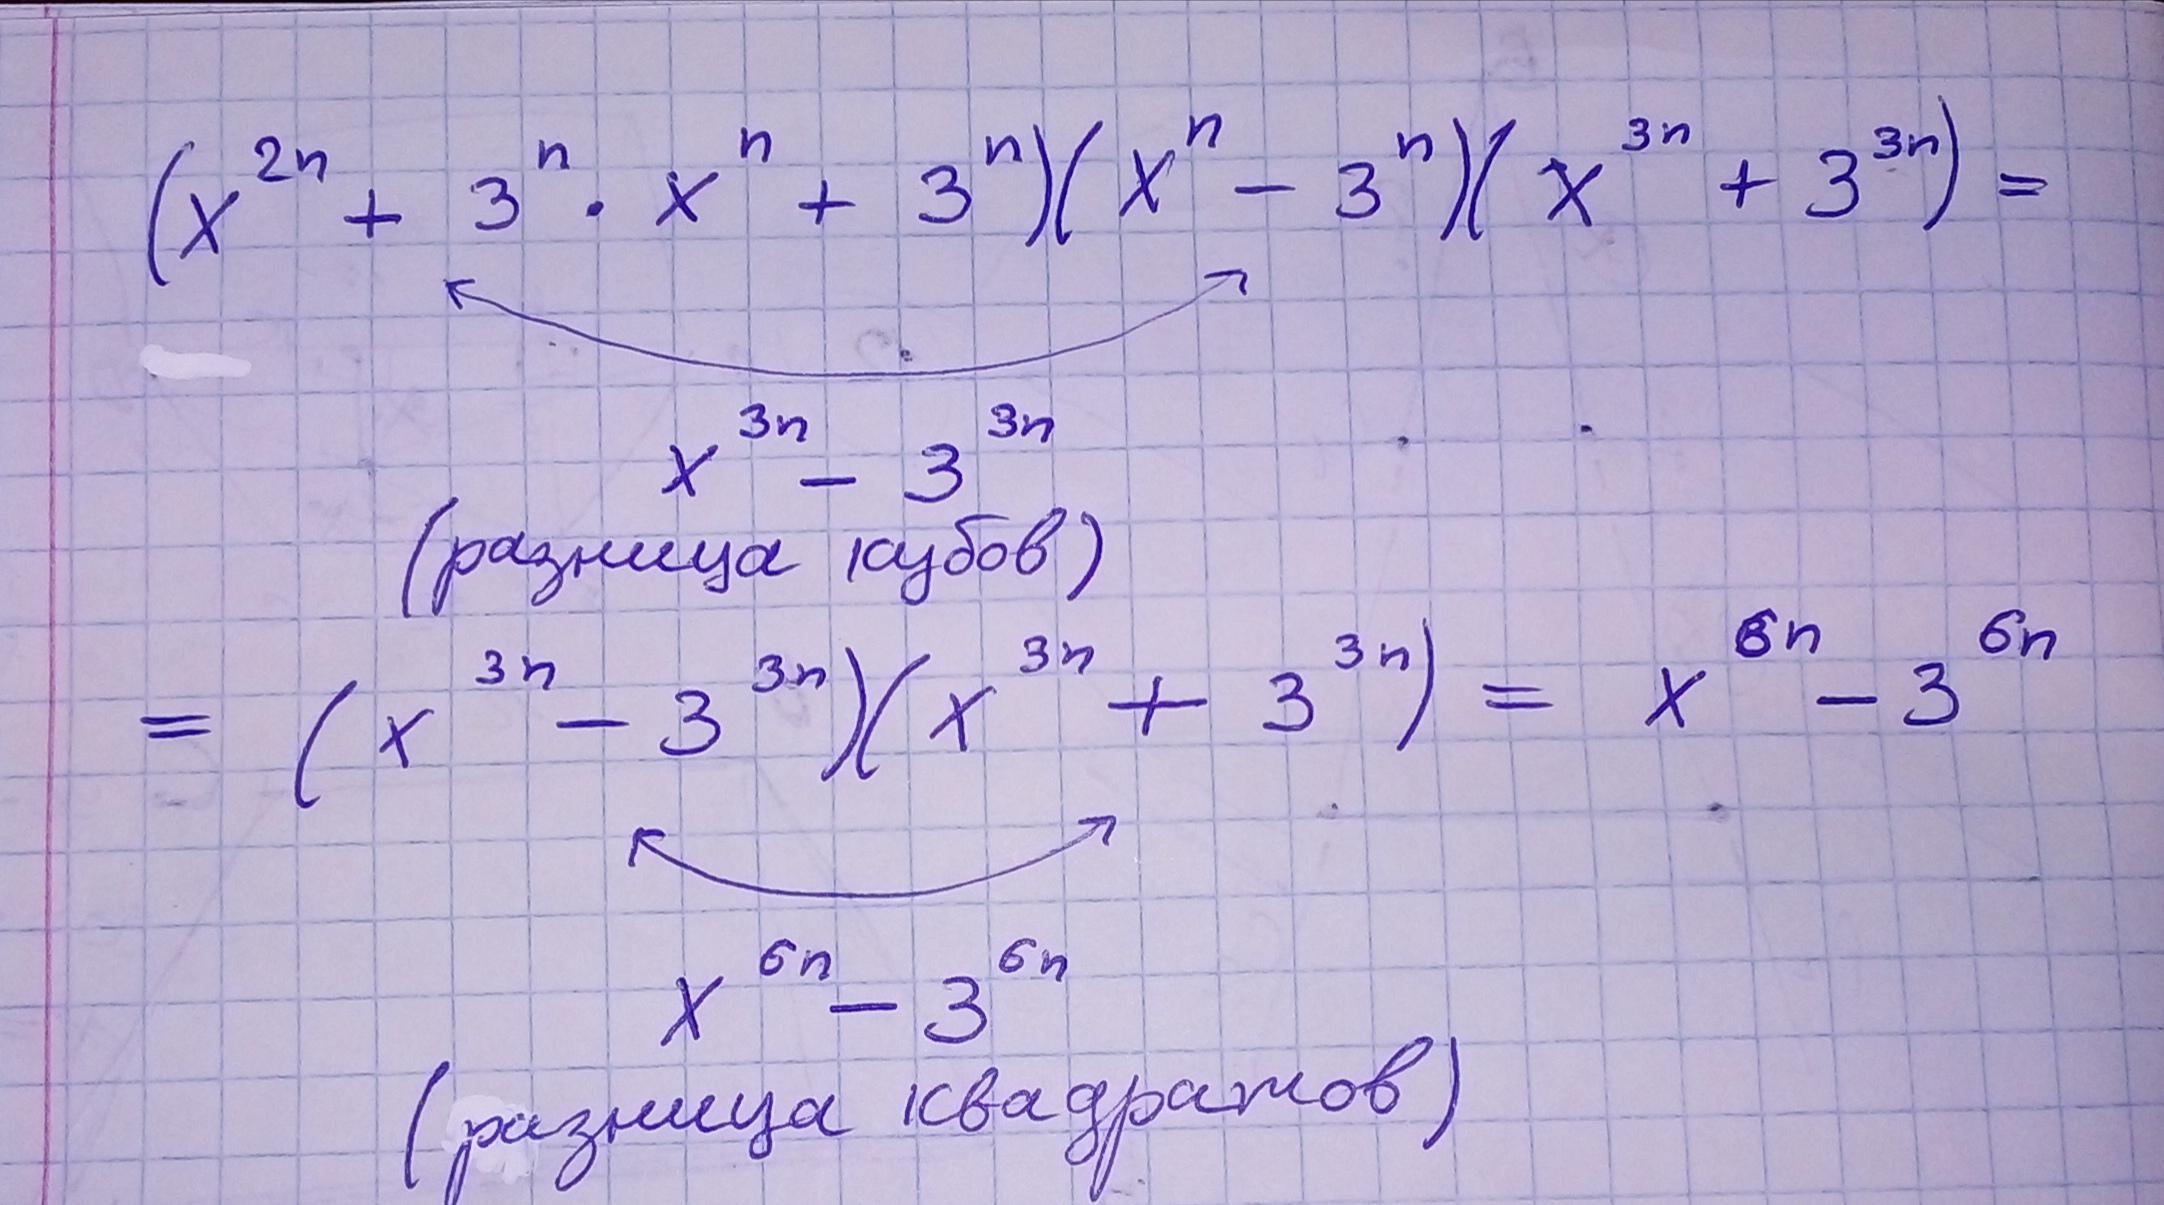 (x²ⁿ + 3ⁿ · xⁿ + 3ⁿ)(xⁿ − 3ⁿ)(x³ⁿ + 3³ⁿ) =
x³ⁿ − 3³ⁿ
(разница кубов)
= (x³ⁿ − 3³ⁿ)(x³ⁿ + 3³ⁿ) = x⁶ⁿ − 3⁶ⁿ
x⁶ⁿ − 3⁶ⁿ
(разница квадратов)